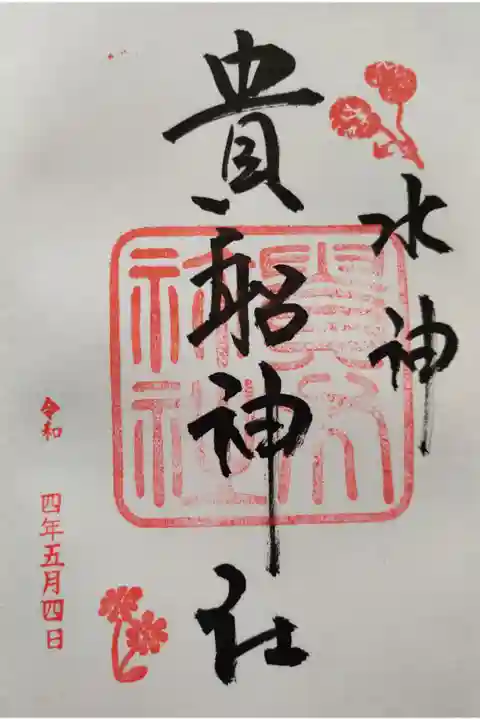 水神
貴船神社
令和 四年五月四日